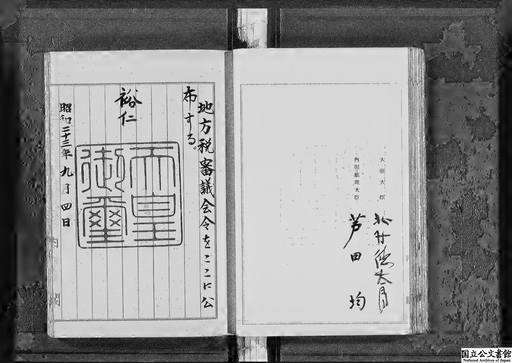 大蔵大臣 北村徳太郎
内閣総理大臣 芦田均
地方税審議会令をここに公
布する。
裕仁
天皇
御璽
昭和二十三年九月四日
内閣
国立公文書館
National Archives of Japan